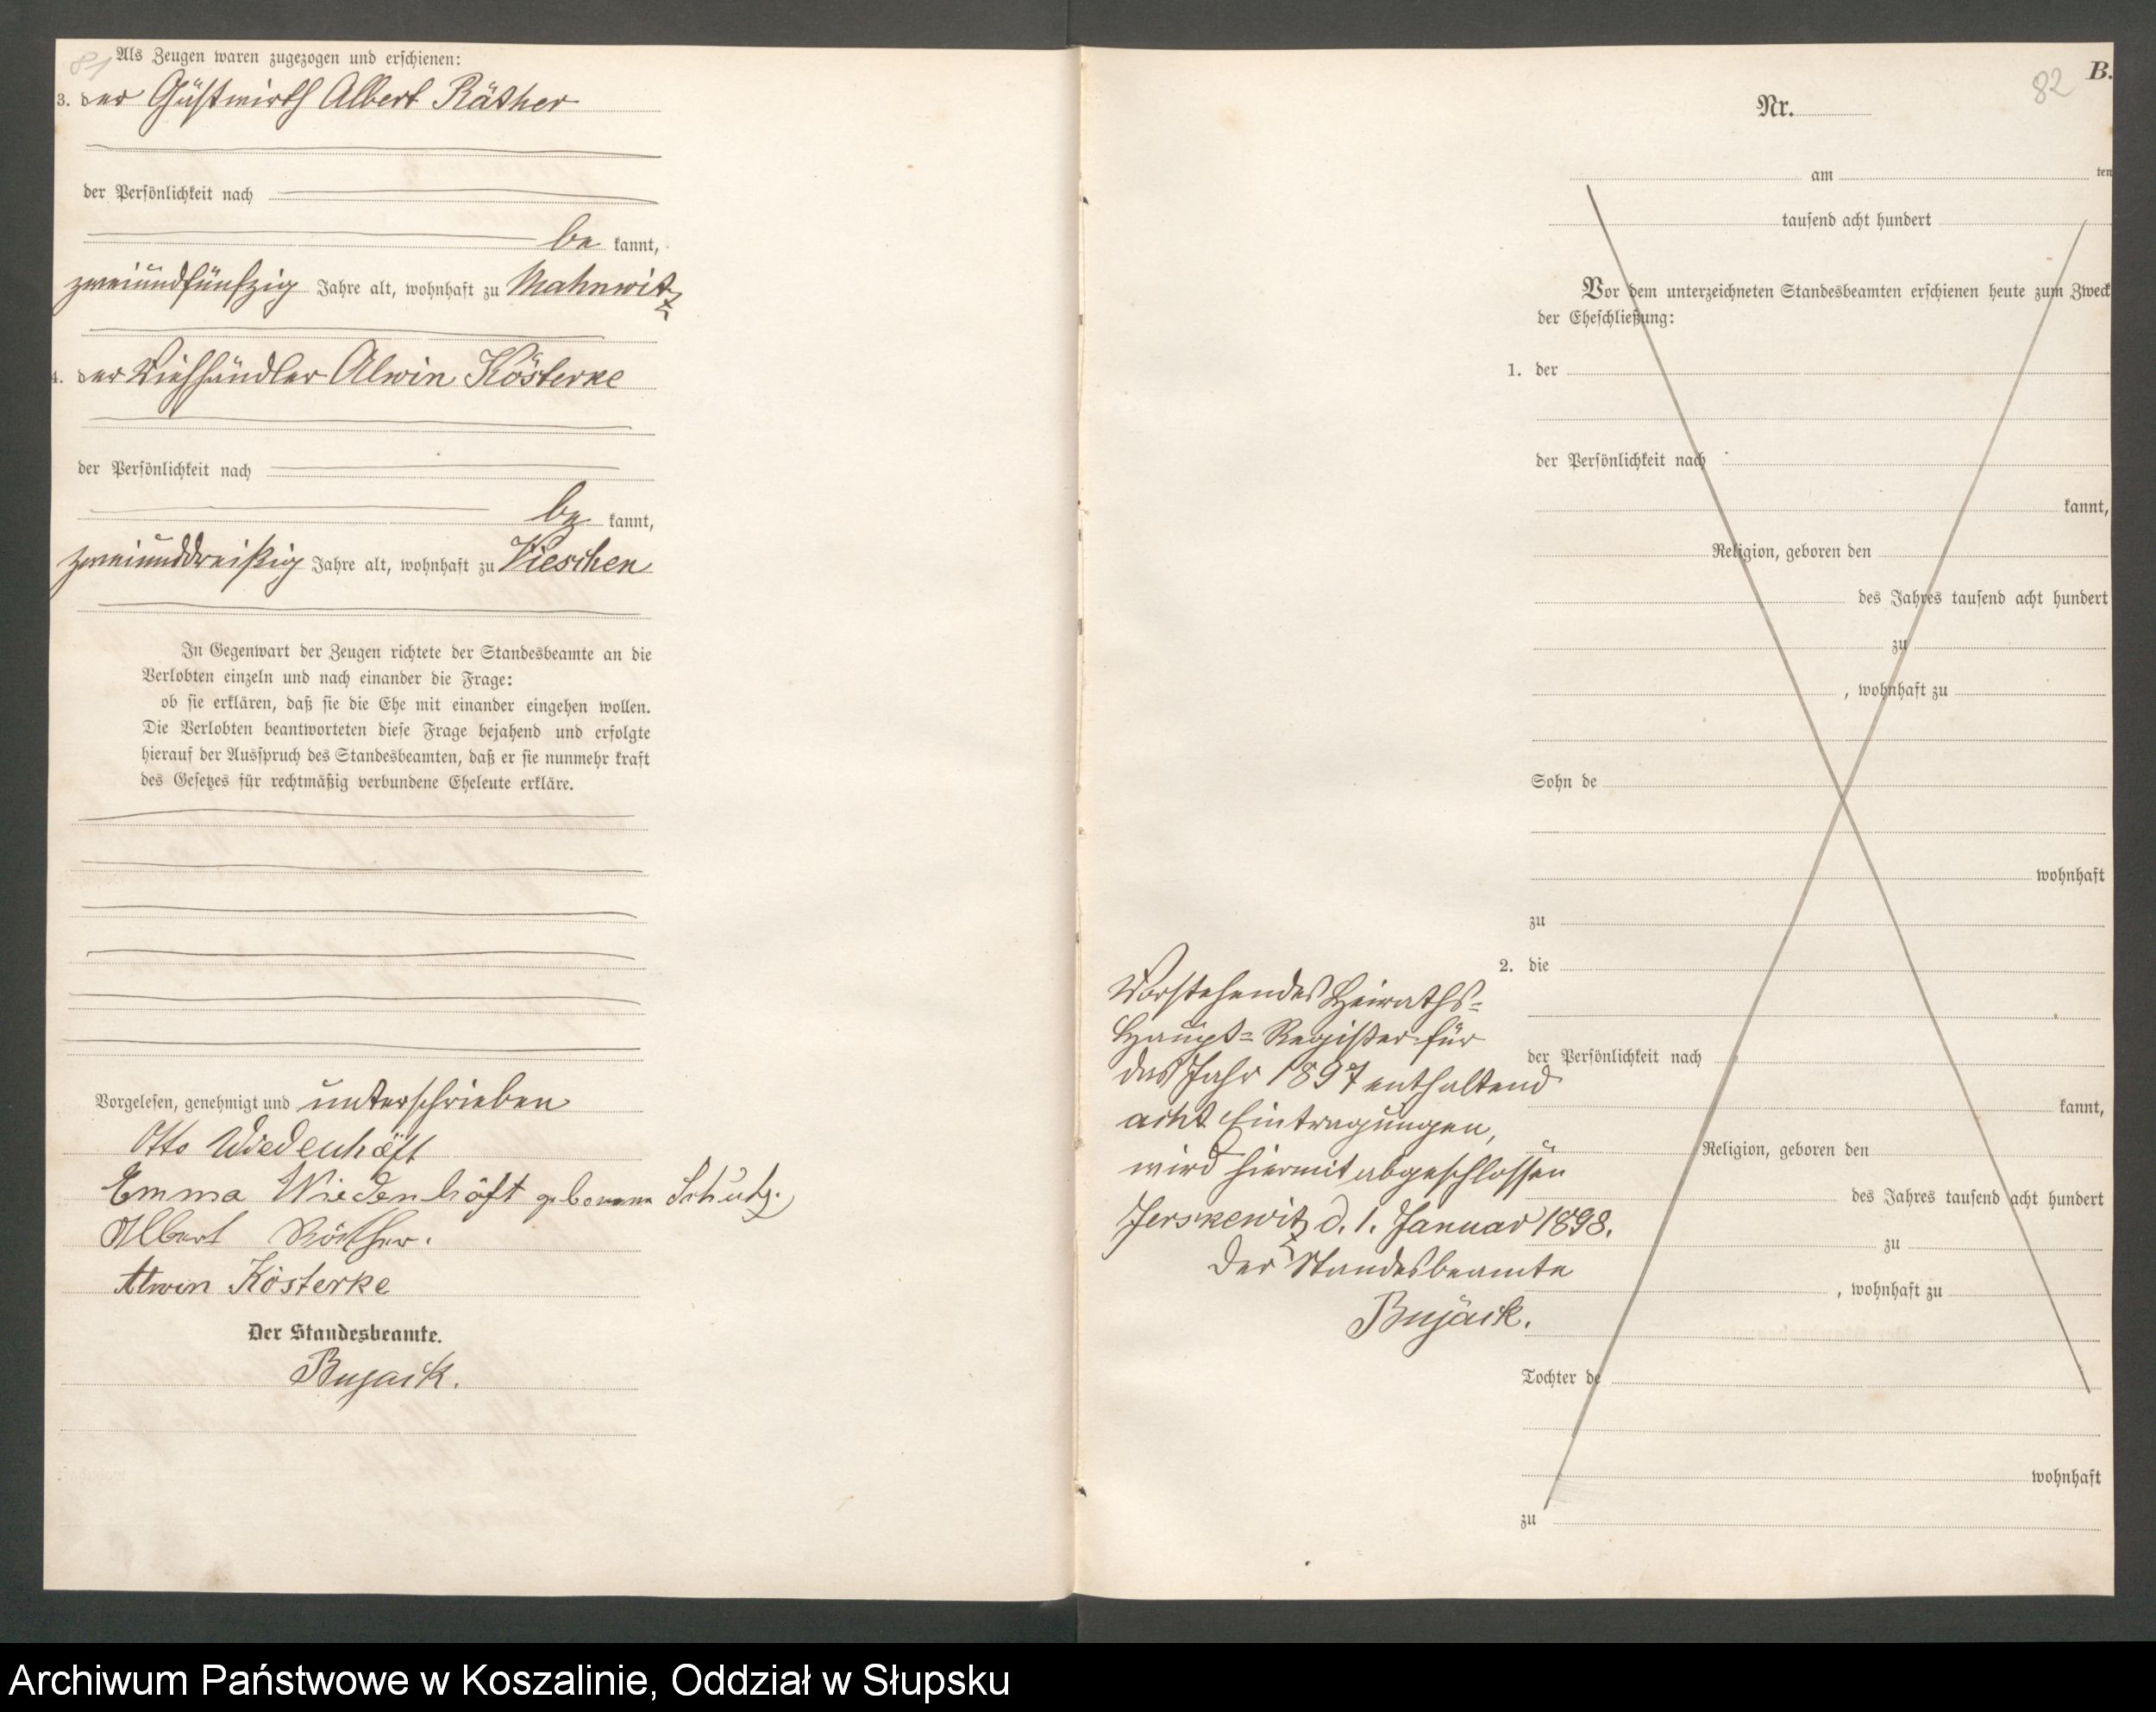 81
Als Zeugen waren zugezogen und erschienen:
3. der Gastwirth Albert Räther
der Persönlichkeit nach
be kannt,
zweiundfünfzig Jahre alt, wohnhaft zu Mahnwitz
4. der Viehhändler Alwin Kösterke
der Persönlichkeit nach
be kannt,
zweiunddreißig Jahre alt, wohnhaft zu Vieschen
In Gegenwart der Zeugen richtete der Standesbeamte an die
Verlobten einzeln und nach einander die Frage:
ob sie erklären, daß sie die Ehe mit einander eingehen wollen.
Die Verlobten beantworteten diese Frage bejahend und erfolgte
hierauf der Ausspruch des Standesbeamten, daß er sie nunmehr kraft
des Gesetzes für rechtmäßig verbundene Eheleute erkläre.
Vorgelesen, genehmigt und unterschrieben
Otto Wiedenhöft
Emma Wiedenhöft geborene Schulz.
Albert Räther.
Alwin Kösterke
Der Standesbeamte.
Bujack.
B.
82
Nr.
am ten
tausend acht hundert
Vor dem unterzeichneten Standesbeamten erschienen heute zum Zweck
der Eheschließung:
1. der
der Persönlichkeit nach
kannt,
Religion, geboren den
des Jahres tausend acht hundert
zu
, wohnhaft zu
Sohn de
wohnhaft
zu
2. die
der Persönlichkeit nach
kannt,
Religion, geboren den
des Jahres tausend acht hundert
zu
, wohnhaft zu
Tochter de
wohnhaft
zu
Vorstehendes Heiraths-
Haupt-Register für
das Jahr 1897 enthaltend
acht Eintragungen,
wird hiermit abgeschlossen
Jerskewitz d. 1. Januar 1898.
Der Standesbeamte
Bujack.
Archiwum Państwowe w Koszalinie, Oddział w Słupsku